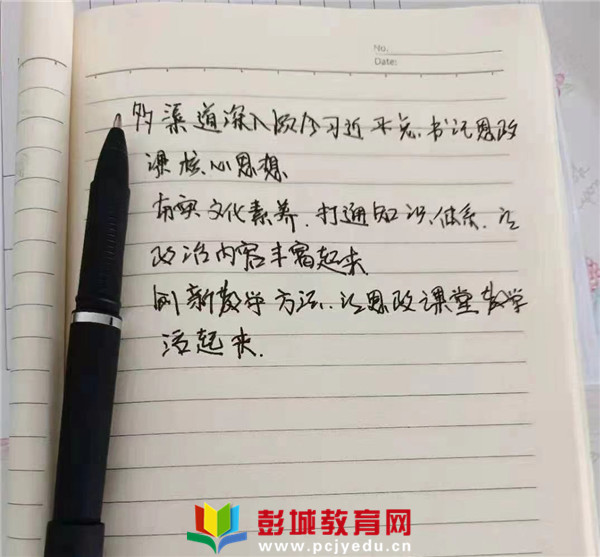 No.
Date:
多渠道深入领会习近平总书记思政
课核心思想
夯实文化素养.打通知识体系.让
政治内容丰富起来
创新教学方法.让思政课堂教学
活起来.
彭城教育网
www.pcjyedu.cn